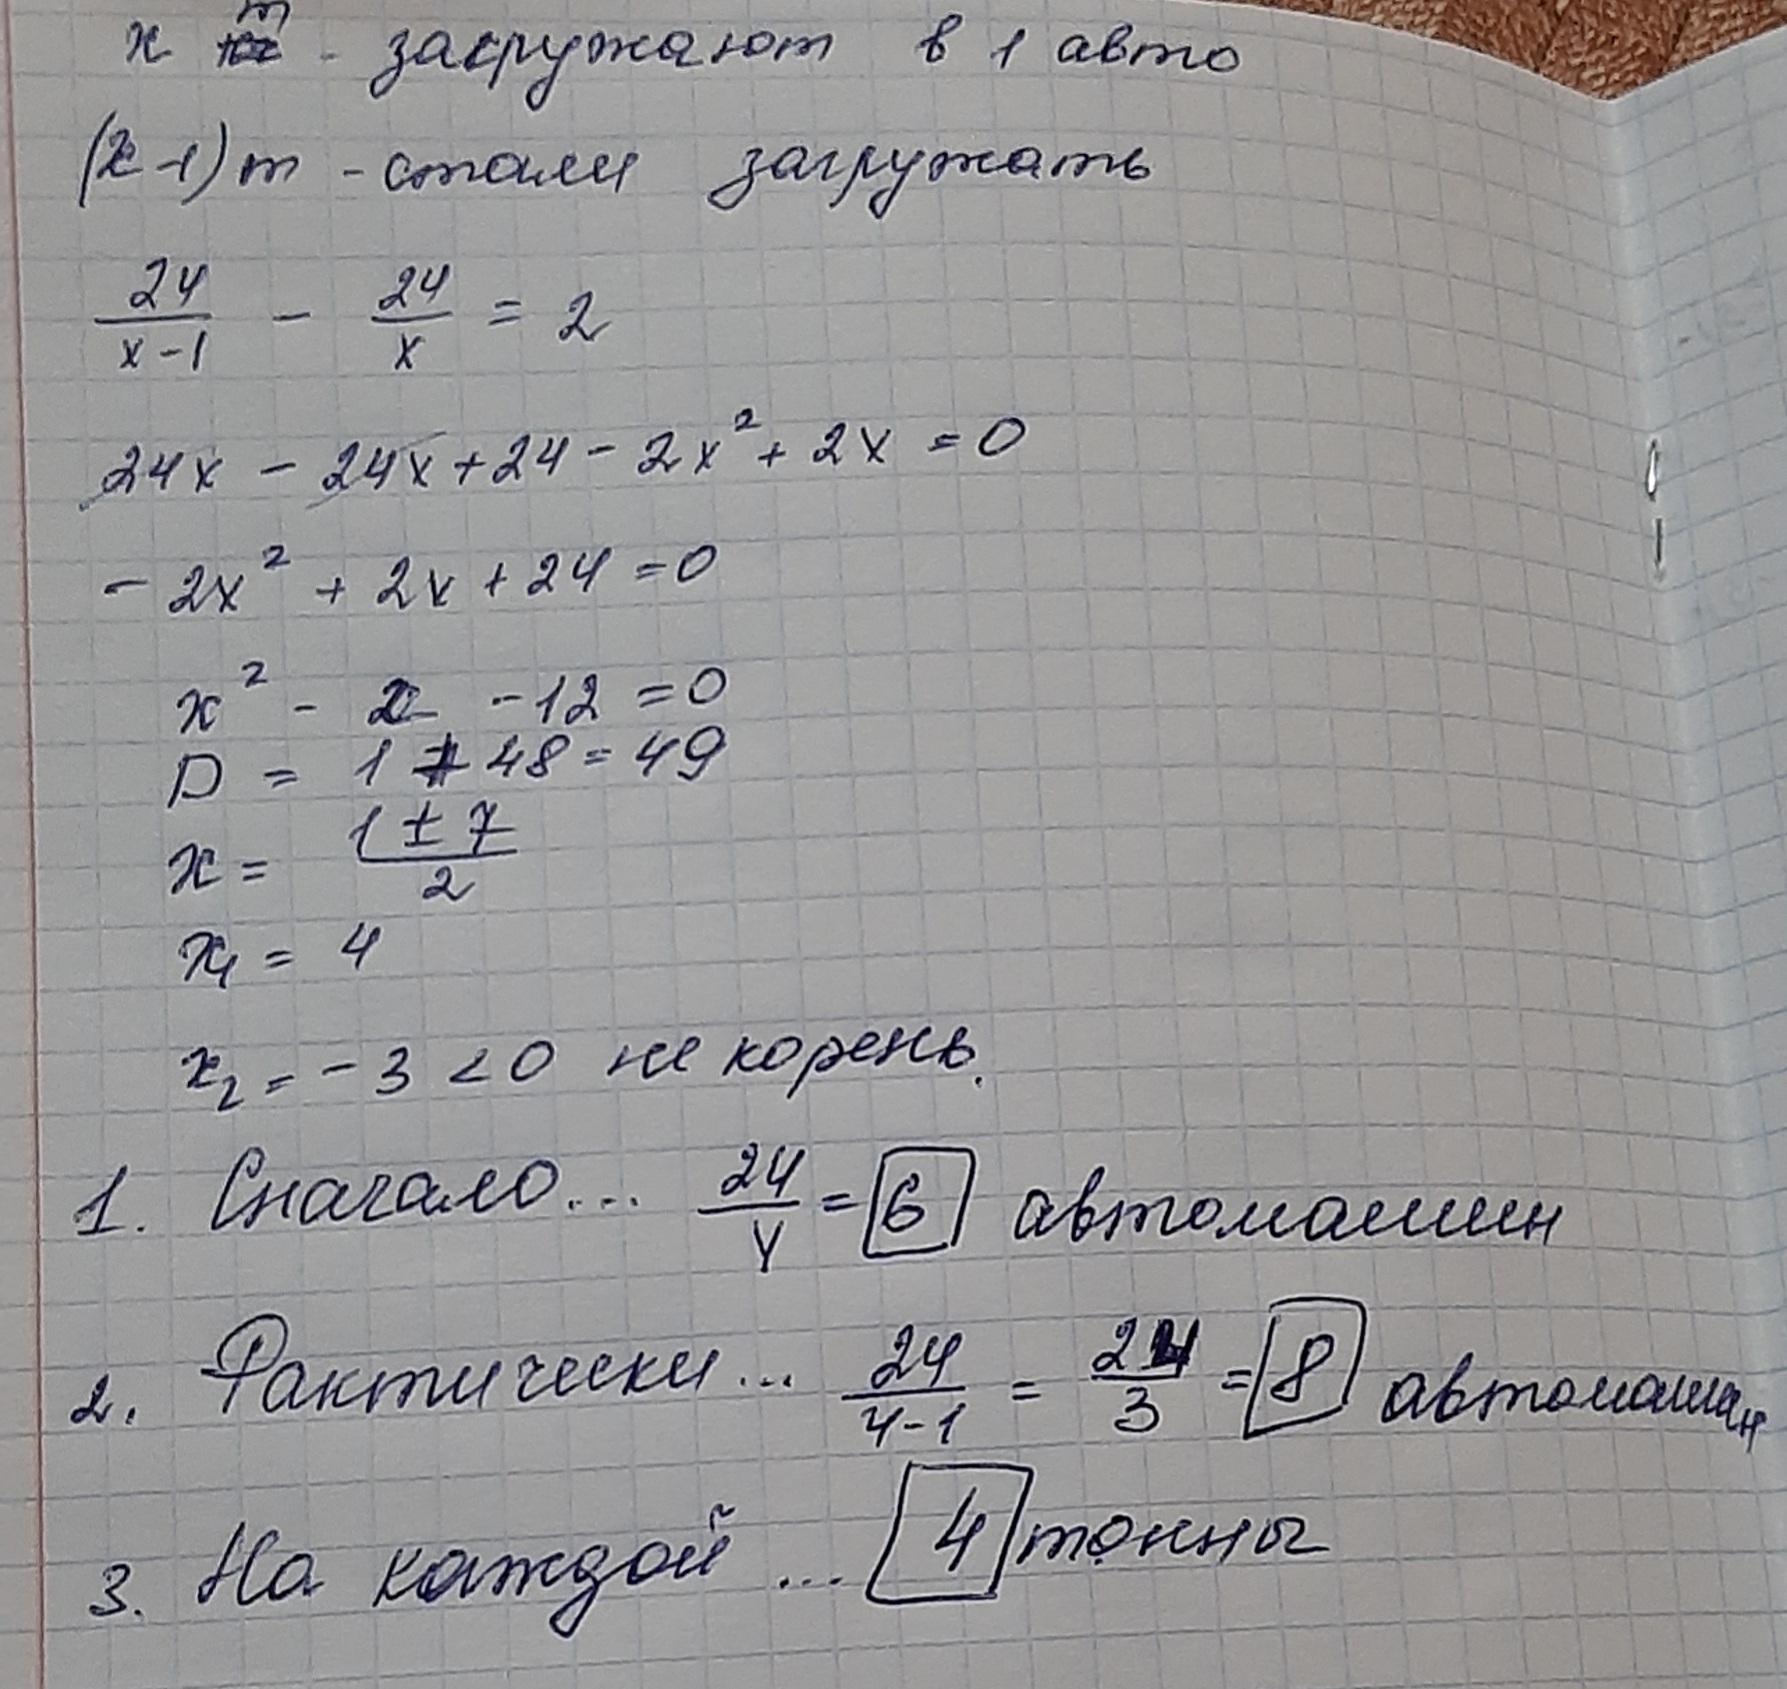 x т - загружают в 1 авто
(x-1) т - стали загружать
24/(x-1) - 24/x = 2
24x - 24x + 24 - 2x² + 2x = 0
- 2x² + 2x + 24 = 0
x² - x - 12 = 0
D = 1 + 48 = 49
x = (1 ± 7)/2
x₁ = 4
x₂ = - 3 < 0 не корень.
1. Сначало... 24/4 = 6 автомашин
2. Фактически... 24/(4-1) = 24/3 = 8 автомашин
3. На каждой ... 4 тонны